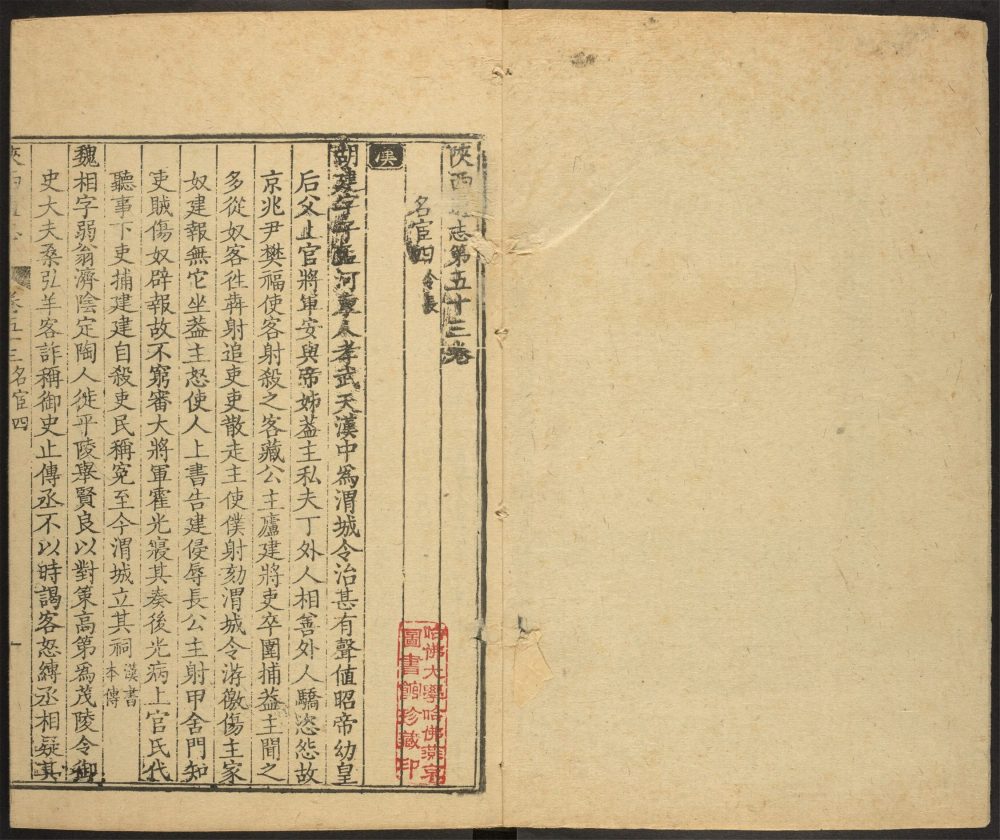 陝西通志第五十三卷
名宦四 令長
漢
胡建字子孟河東人孝武天漢中爲渭城令治甚有聲値昭帝幼皇
后父上官將軍安與帝姊蓋主私夫丁外人相善外人驕恣怨故
京兆尹樊福使客射殺之客藏公主廬建將吏卒圍捕蓋主聞之
多從奴客徃犇射追吏吏散走主使僕射劾渭城令游徼傷主家
奴建報無它坐蓋主怒使人上書告建侵辱長公主射甲舍門知
吏賊傷奴辟報故不窮審大將軍霍光寢其奏後光病上官氏代
聽事下吏捕建建自殺吏民稱冤至今渭城立其祠 漢書本傳
魏相字弱翁濟陰定陶人徙平陵舉賢良以對策高第爲茂陵令御
史大夫桑弘羊客詐稱御史止傳丞不以時謁客怒縛丞相疑其
卷五十三 名宦四 一
哈佛大學哈佛燕京
圖書館珍藏印